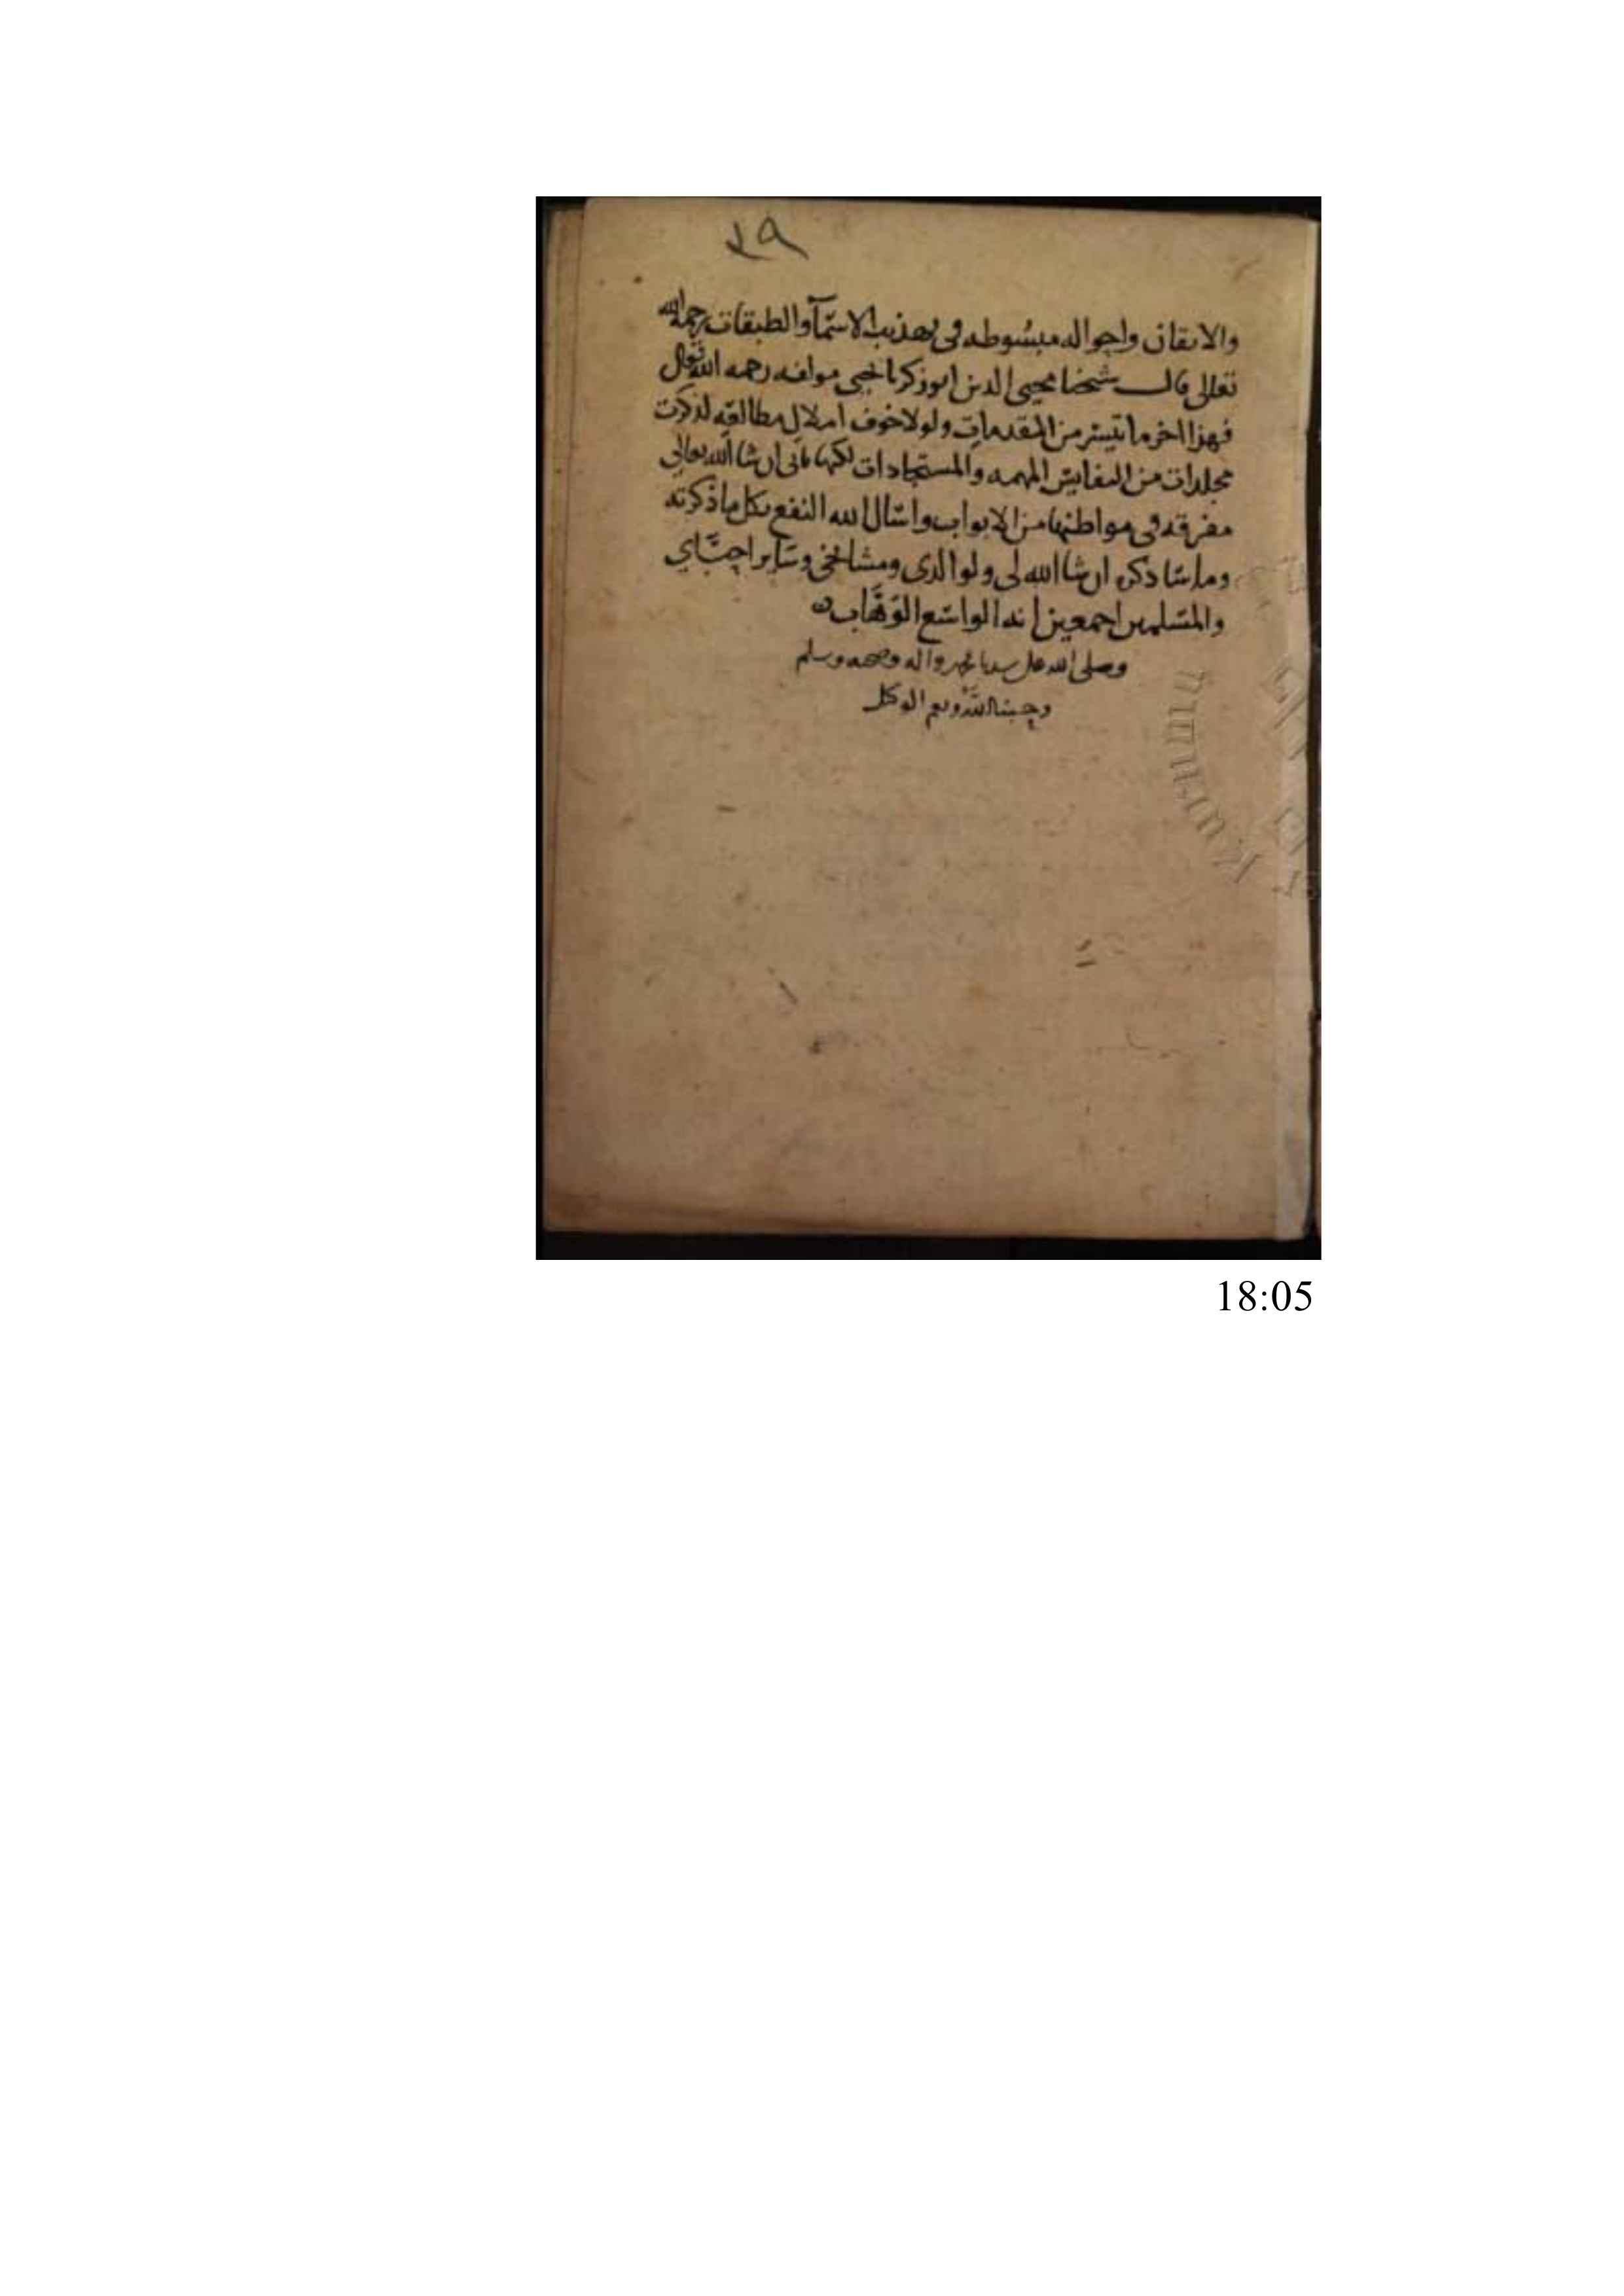 ٢٩
والاتقان واحواله مبسوطه في تهذيب الاسمآ والطبقات رحمه الله
تعالى قال شيخنا محيي الدين ابو زكريا يحيى مولفه رحمه الله تعالى
فهذا اخر ما تيسر من المقدمات ولولا خوف املال مطالعه لذكرت
مجلدات من النفايس المهمه والمستجادات لكنها تاتي ان شا الله تعالى
مفرقه في مواطنها من الابواب واسال الله النفع بكل ما ذكرته
وما ساذكره ان شا الله لي ولوالدي ومشايخي وساير احبّاي
والمسلمين اجمعين انه الواسع الوهَّاب
وصلى الله على سيدنا محمد واله وصحبه وسلم
وحسبنا الله ونعم الوكيل
18:05